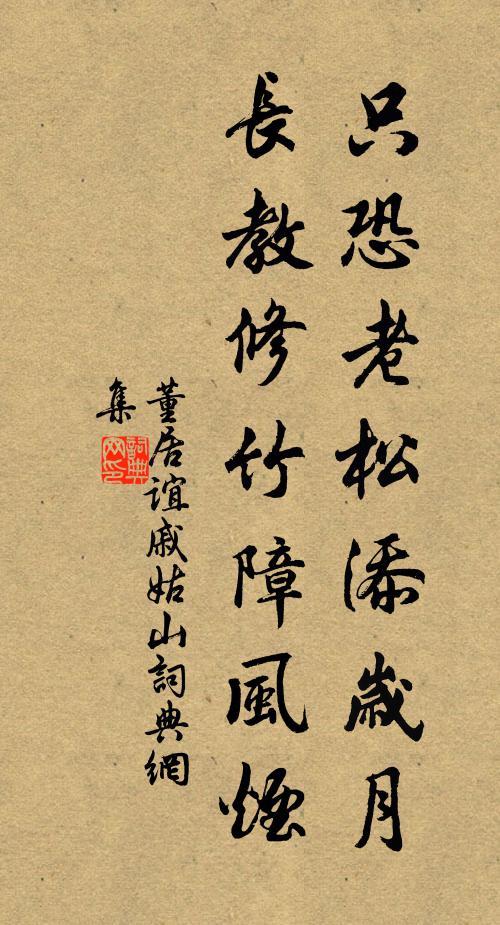 只恐老松添歲月
長教修竹障風煙
董居誼戚姑山詞典網
集
詞典網印